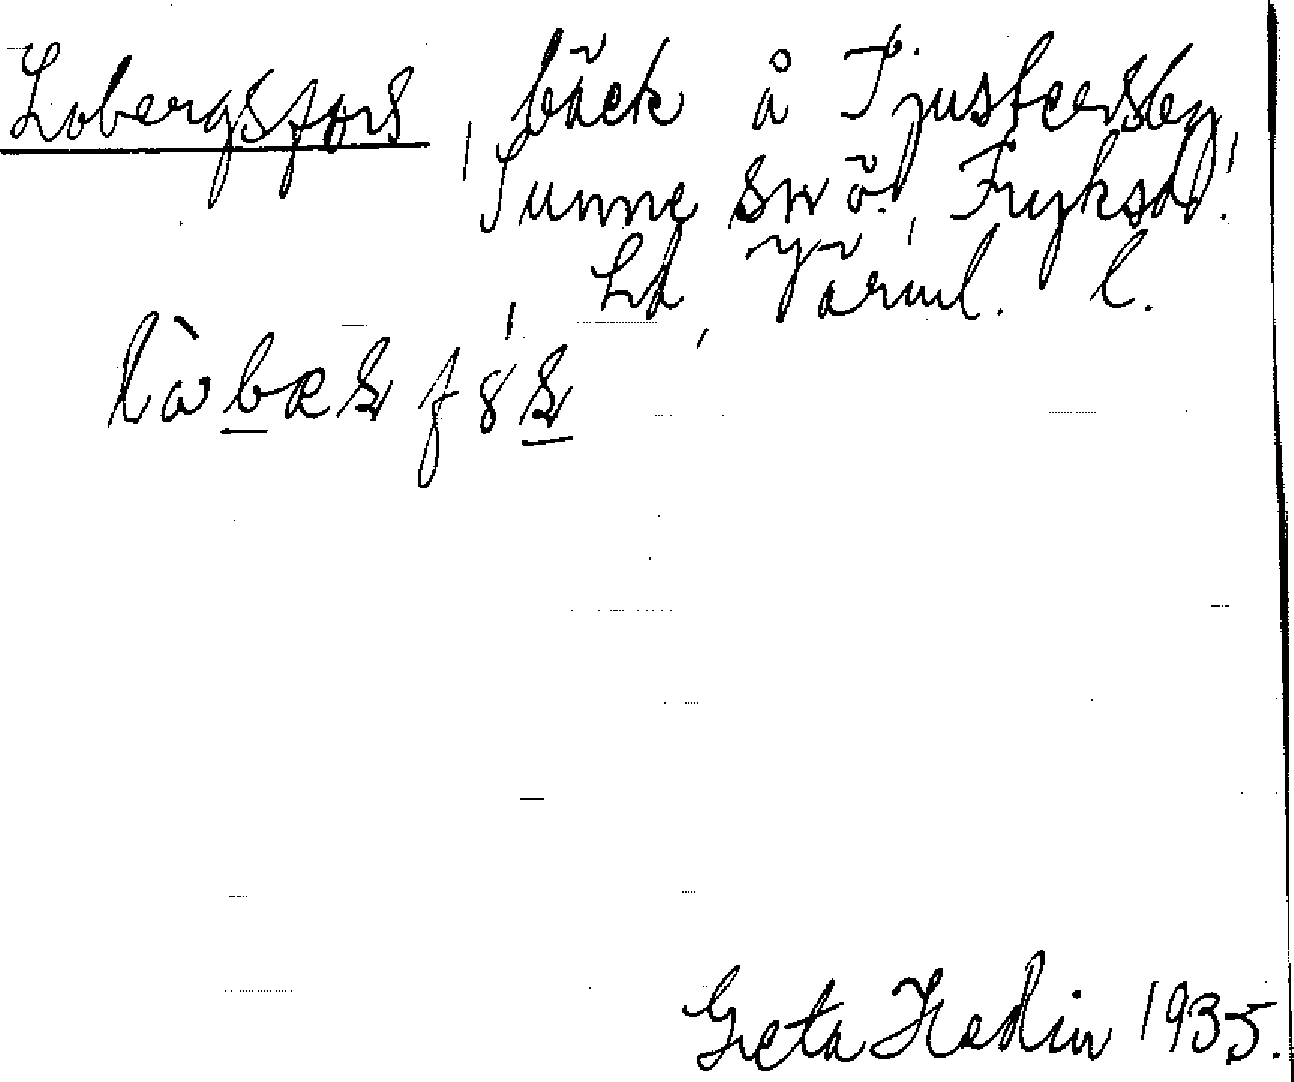 Lobergsfors, bäck å Tjustersby,
Sunne sn ö., Fryksd.
hd, Värml. l.
Greta Hedin 1935.